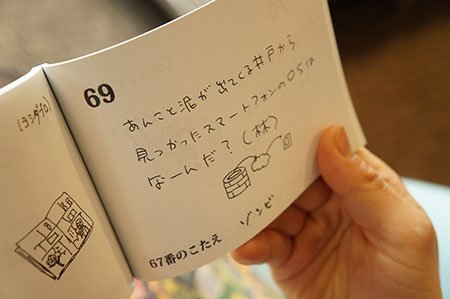 [ヨシダプロ]
69
あんこと泥が出てくる井戸から
見つかったスマートフォンのOSは
なーんだ?(林)
67番のこたえ
ゾンビ